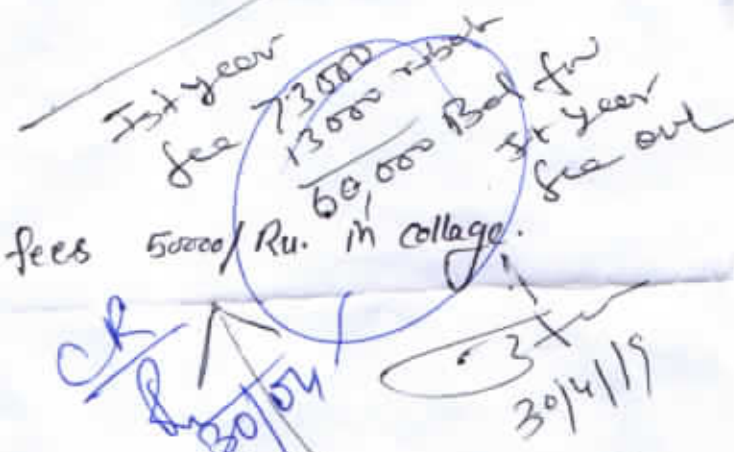 Ist year
fee 73000
13000 rebat
60,000 Bal for
Ist year
fee only
fees 50000/ Ru. in collage.
CR
30/04
30/4/19